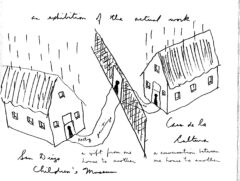 an exhibition of the actual work
Casa de la
Cultura
a gift from one
house to another
a conversation between
one house to another
San Diego
Children's Museum